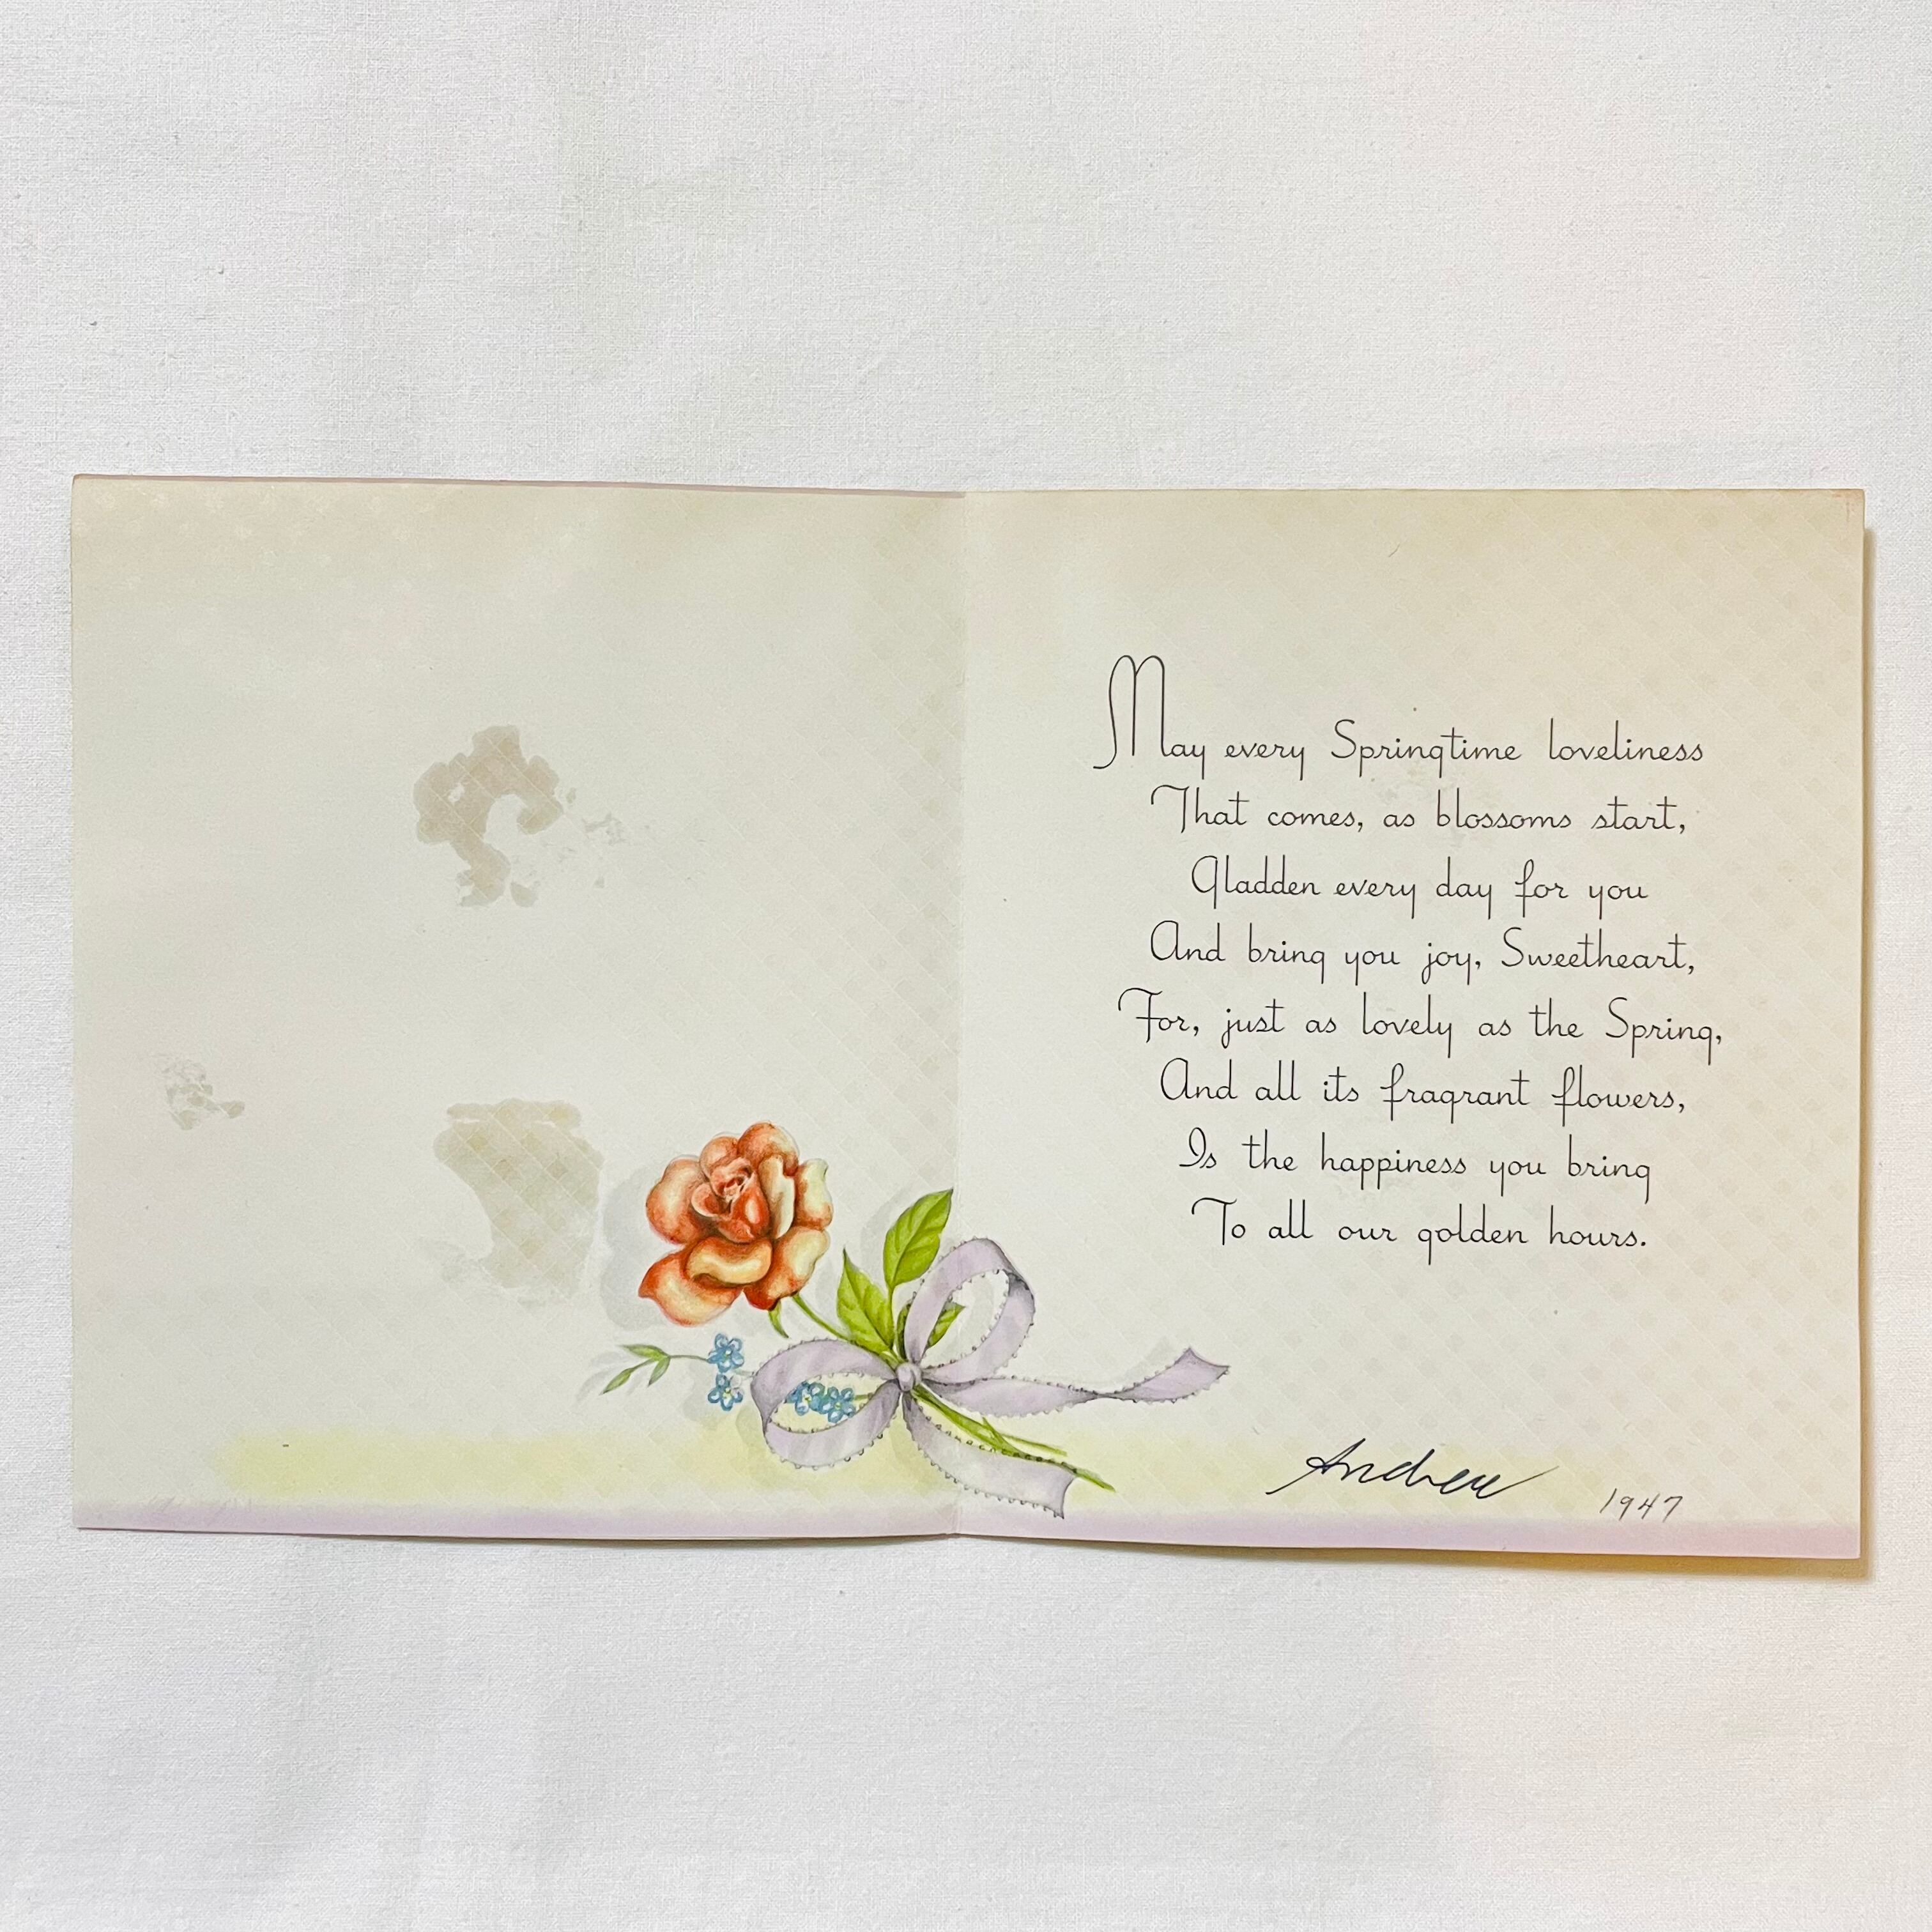 May every Springtime loveliness
That comes, as blossoms start,
Gladden every day for you
And bring you joy, Sweetheart,
For, just as lovely as the Spring,
And all its fragrant flowers,
Is the happiness you bring
To all our golden hours.
Andrew
1947